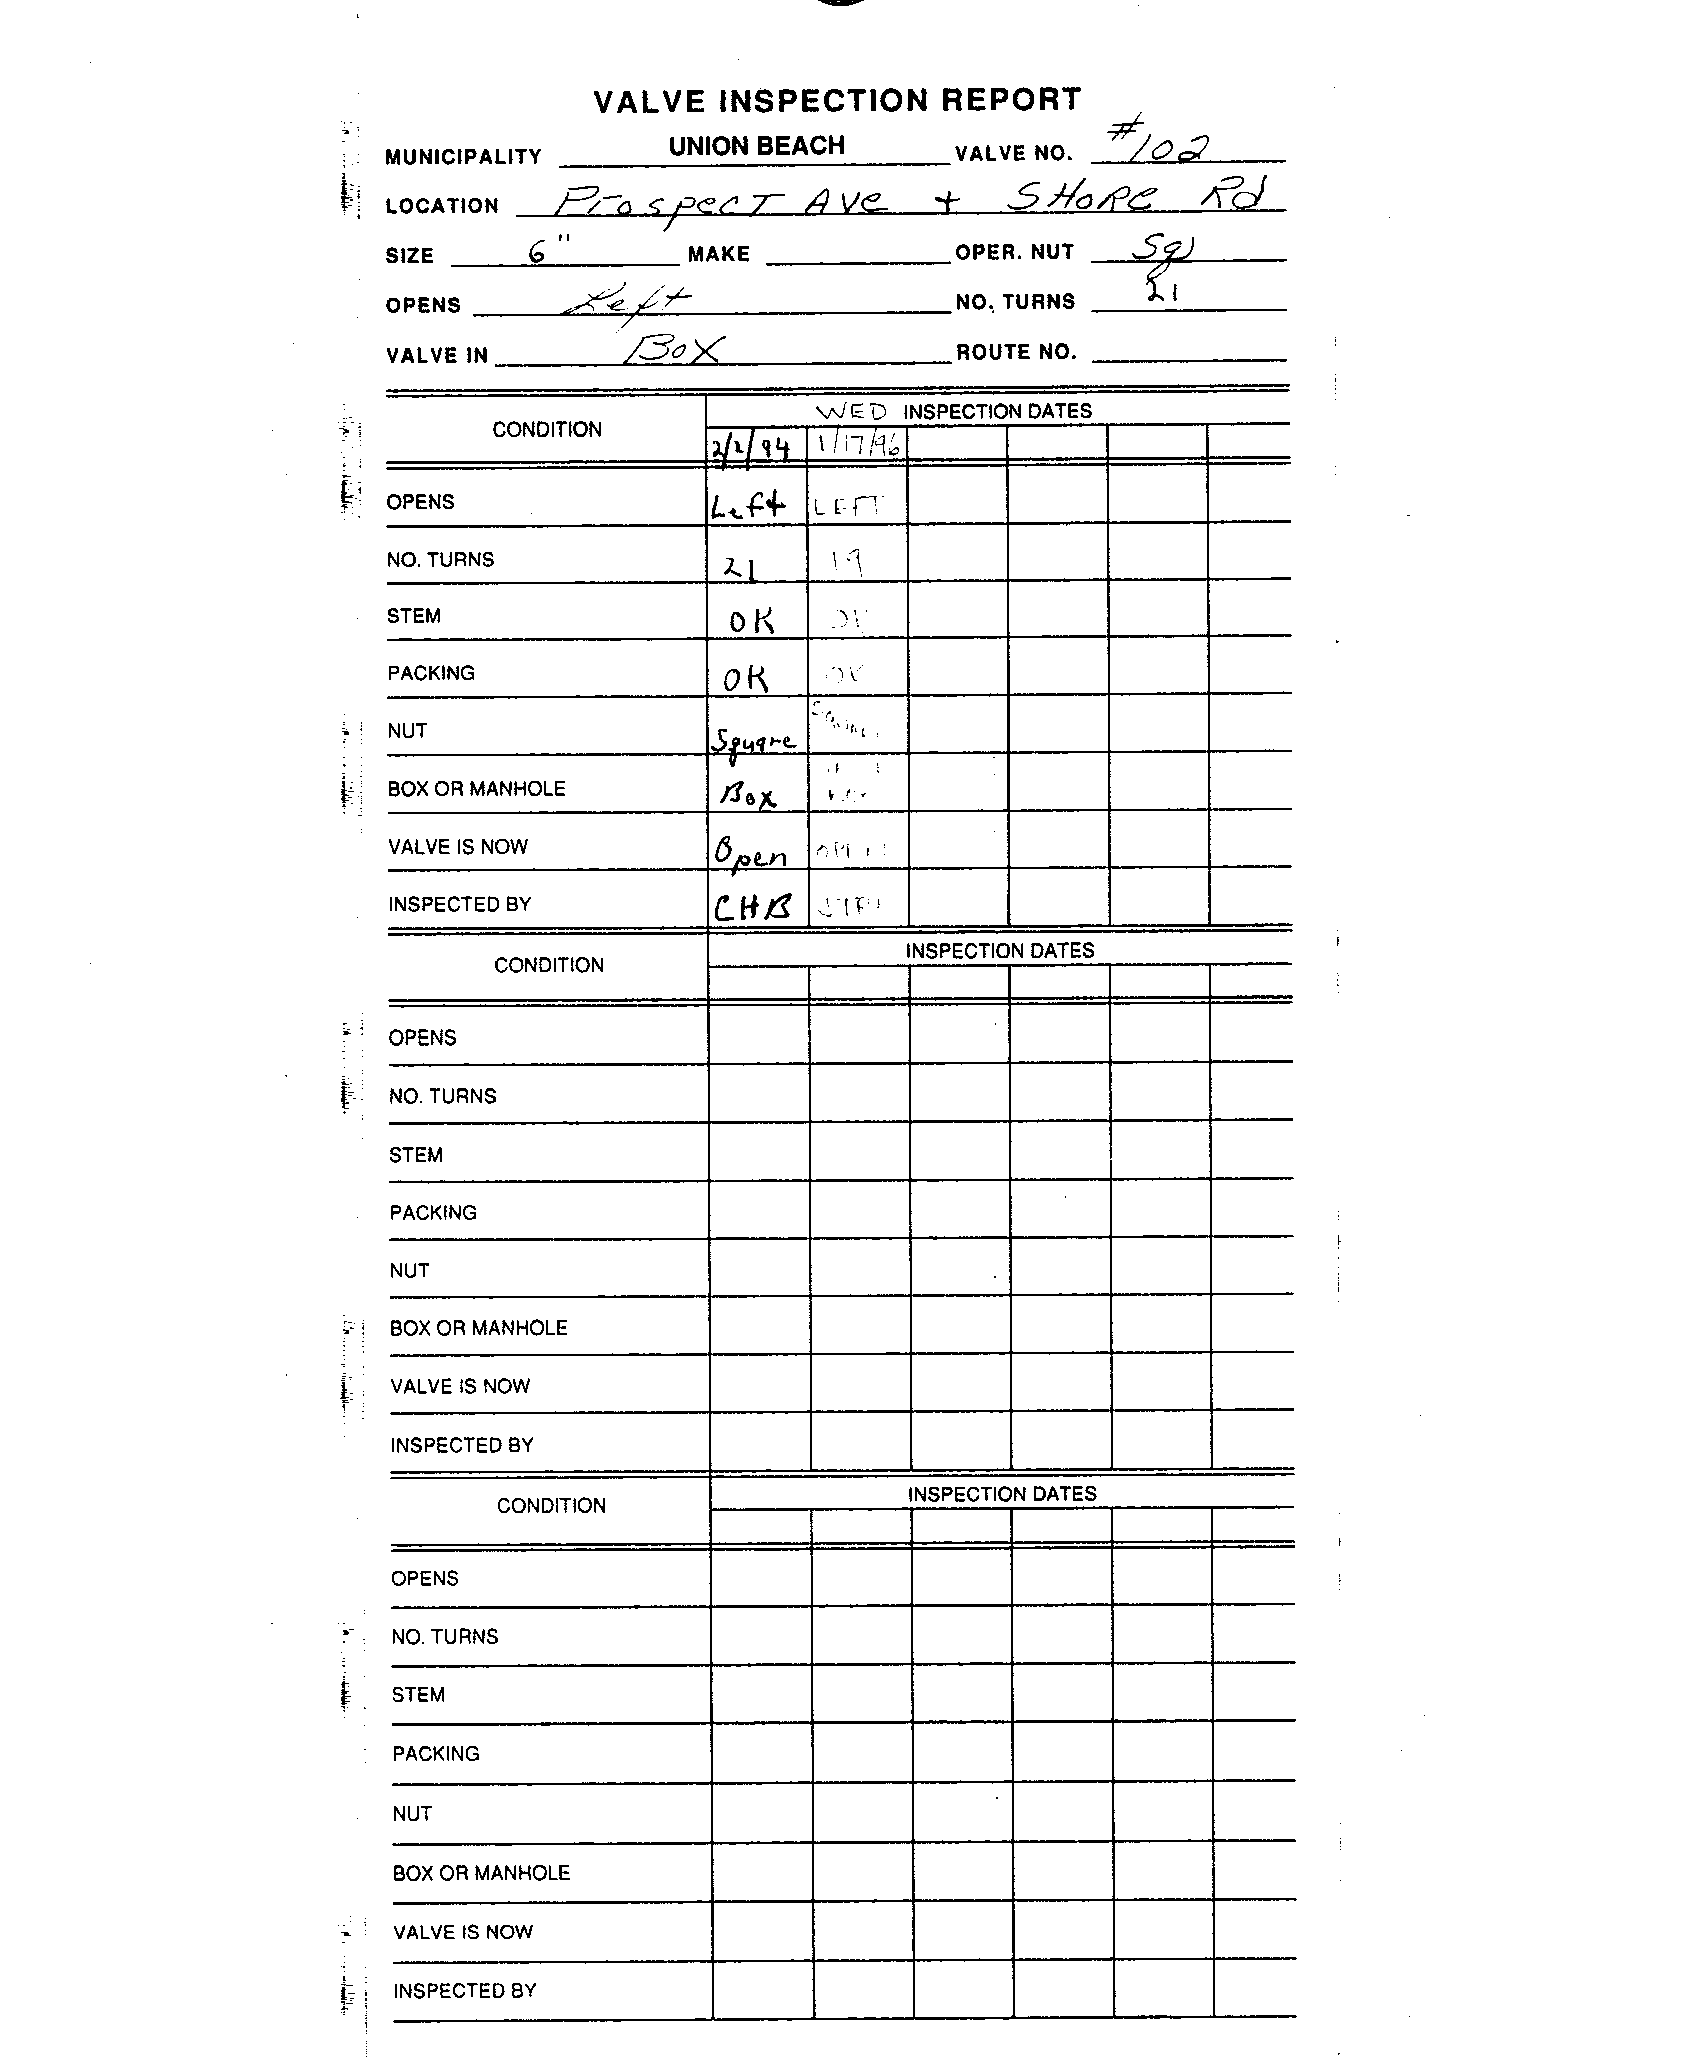 VALVE INSPECTION REPORT
MUNICIPALITY UNION BEACH VALVE NO. #102
LOCATION Prospect Ave + SHORE Rd
SIZE 6" MAKE OPER. NUT Sq
OPENS Left NO. TURNS 21
VALVE IN Box ROUTE NO.
CONDITION WED INSPECTION DATES
2/2/94 1/17/96
OPENS Left LEFT
NO. TURNS 21 19
STEM OK OK
PACKING OK OK
NUT Square SQUARE
BOX OR MANHOLE Box
VALVE IS NOW Open OPEN
INSPECTED BY CHB
CONDITION INSPECTION DATES
OPENS
NO. TURNS
STEM
PACKING
NUT
BOX OR MANHOLE
VALVE IS NOW
INSPECTED BY
CONDITION INSPECTION DATES
OPENS
NO. TURNS
STEM
PACKING
NUT
BOX OR MANHOLE
VALVE IS NOW
INSPECTED BY